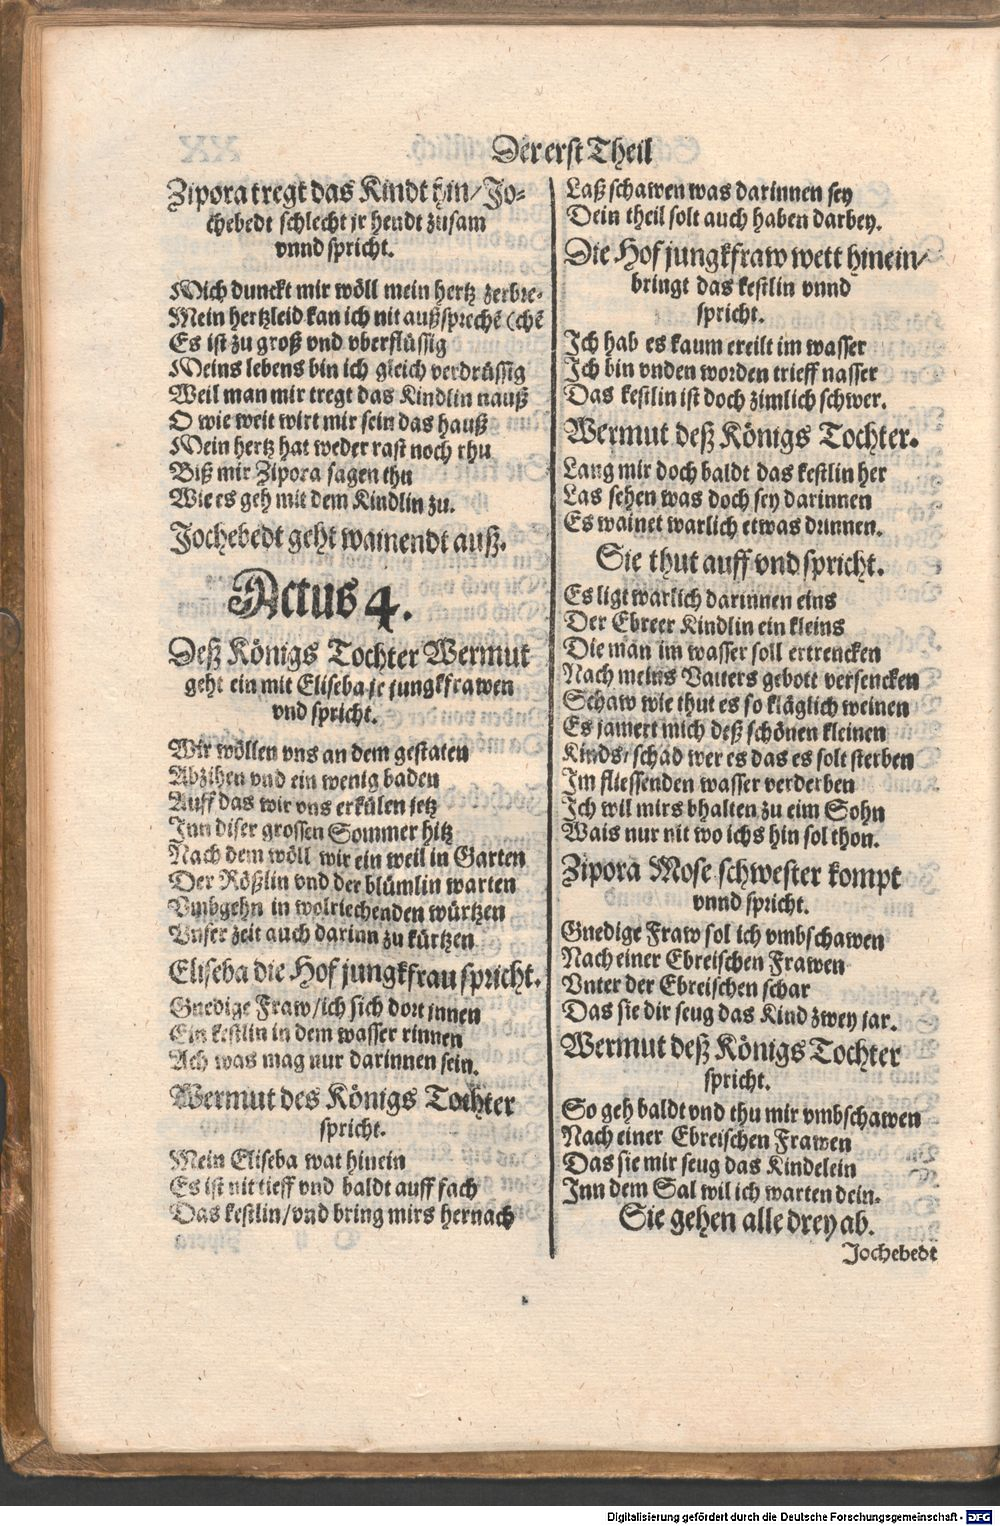 Der erst Theil
Zipora tregt das Kindt hin/ Jo-
chebedt schlecht jr hendt zusam
vnnd spricht.
Mich dunckt mir wöll mein hertz zerbre-
Mein hertzleid kan ich nit außsprechē (chē
Es ist zu groß vnd vberflüssig
Meins lebens bin ich gleich verdrüssig
Weil man mir tregt das Kindlin nauß
O wie weit wirt mir sein das hauß
Mein hertz hat weder rast noch rhu
Biß mir Zipora sagen thu
Wie es geh mit dem Kindlin zu.
Jochebedt geht wainendt auß.
Actus 4.
Deß Königs Tochter Wermut
geht ein mit Eliseba jr jungkfrawen
vnd spricht.
Wir wöllen vns an dem gestaten
Abzihen vnd ein wenig baden
Auff das wir vns erkülen jetz
Inn diser grossen Sommer hitz
Nach dem wöll wir ein weil in Garten
Der Rößlin vnd der blümlin warten
Vmbgehn in wolriechenden würtzen
Vnser zeit auch darinn zu kürtzen
Eliseba die Hof jungkfrau spricht.
Gnedige Fraw/ ich sich dort jnnen
Ein kestlin in dem wasser rinnen
Ach was mag nur darinnen sein.
Wermut des Königs Tochter
spricht.
Mein Eliseba wat hinein
Es ist nit tieff vnd baldt auff fach
Das kestlin/ vnd bring mirs hernach
Laß schawen was darinnen sey
Dein theil solt auch haben darbey.
Die Hof jungkfraw wett hinein/
bringt das kestlin vnnd
spricht.
Ich hab es kaum ereilt im wasser
Ich bin vnden worden trieff nasser
Das kestlin ist doch zimlich schwer.
Wermut deß Königs Tochter.
Lang mir doch baldt das kestlin her
Las sehen was doch sey darinnen
Es wainet warlich etwas drinnen.
Sie thut auff vnd spricht.
Es ligt warlich darinnen eins
Der Ebreer Kindlin ein kleins
Die man im wasser soll ertrencken
Nach meins Vatters gebott versencken
Schaw wie thut es so kläglich weinen
Es jamert mich deß schönen kleinen
Kinds/ schad wer es das es solt sterben
Im fliessenden wasser verderben
Ich wil mirs bhalten zu eim Sohn
Wais nur nit wo ichs hin sol thon.
Zipora Mose schwester kompt
vnnd spricht.
Gnedige Fraw sol ich vmbschawen
Nach einer Ebreischen Frawen
Vnter der Ebreischen schar
Das sie dir seug das Kind zwey jar.
Wermut deß Königs Tochter
spricht.
So geh baldt vnd thu mir vmbschawen
Nach einer Ebreischen Frawen
Das sie mir seug das Kindelein
Inn dem Sal wil ich warten dein.
Sie gehen alle drey ab.
Jochebedt
Digitalisierung gefördert durch die Deutsche Forschungsgemeinschaft - DFG